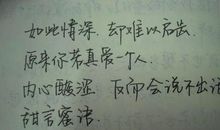 如此情深,却难以启齿.
原来你若真爱一个人.
内心酸涩,反而会说不出话
甜言蜜语.